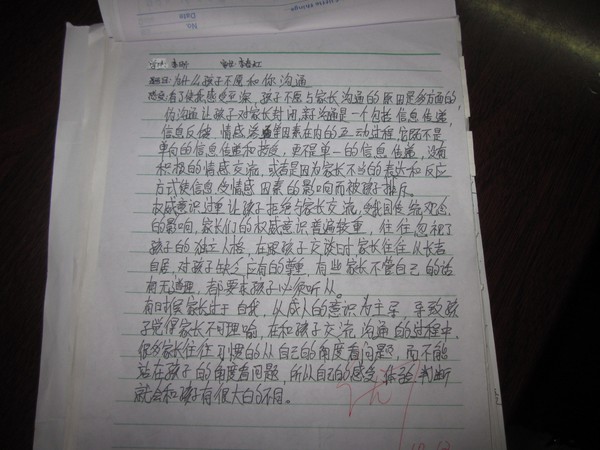 little things
No.
Date
题目:为什么孩子不愿和你沟通
感受:看了使我感受至深,孩子不愿与家长沟通的原因是多方面的
伪沟通让孩子对家长封闭,新沟通是一个包括信息传递,
信息反馈、情感递等因素在内的互动过程,它既不是
单向的信息传递和接受,更不是单一的信息传递,没有
积极的情感交流,或者是因为家长不当的表达和反应
方式使信息受情感因素的影响而被孩子排斥。
权威意识过重让孩子拒绝与家长交流,受我国传统观念
的影响,家长们的权威意识普遍较重,往往忽视了
孩子的独立人格,在跟孩子交谈时家长往往从长者
自居,对孩子缺少应有的尊重,有些家长不管自己的话
有无道理,都要求孩子必须听从。
有时候家长过于自我,从成人的意识为主导,导致孩
子觉得家长不可理喻,在和孩子交流沟通的过程中,
很多家长往往习惯的从自己的角度看问题,而不能
站在孩子的角度看问题,所从自己的感受、体验、判断
就会和孩子有很大的不同。
优